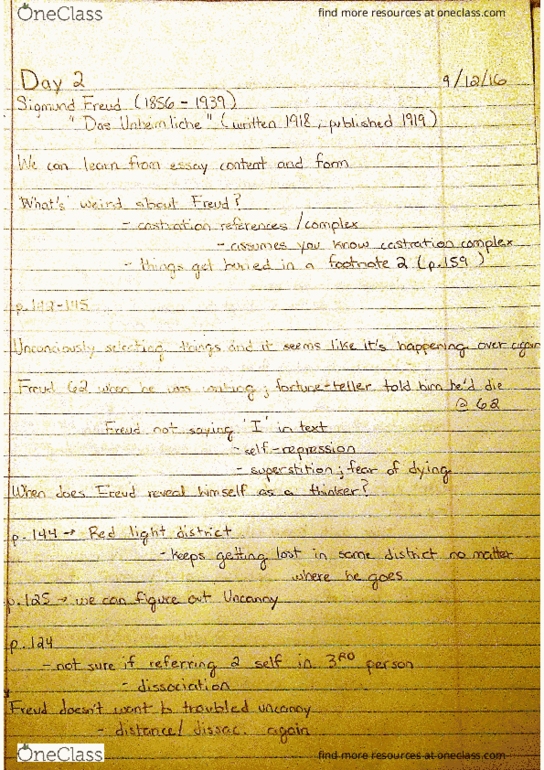 OneClass
find more resources at oneclass.com
Day 2
9/12/16
Sigmund Freud (1856 - 1939)
"Das Unheimliche" (written 1918, published 1919)
We can learn from essay content and form
What's weird about Freud?
- castration references / complex
- assumes you know castration complex
- things get buried in a footnote 2 (p.159)
p.142-145
Unconciously selecting things and it seems like it's happening over again
Freud 62 when he was writing; fortune-teller told him he'd die
@ 62
Freud not saying 'I' in text
- self-repression
- superstition; fear of dying
When does Freud reveal himself as a thinker?
p.144 → Red light district
- keeps getting lost in same district no matter
where he goes
p.125 → we can figure out Uncanny
p.124
- not sure if referring 2 self in 3RD person
- dissociation
Freud doesn't want to troubled uncanny
- distance/ dissac. again
OneClass
find more resources at oneclass.com